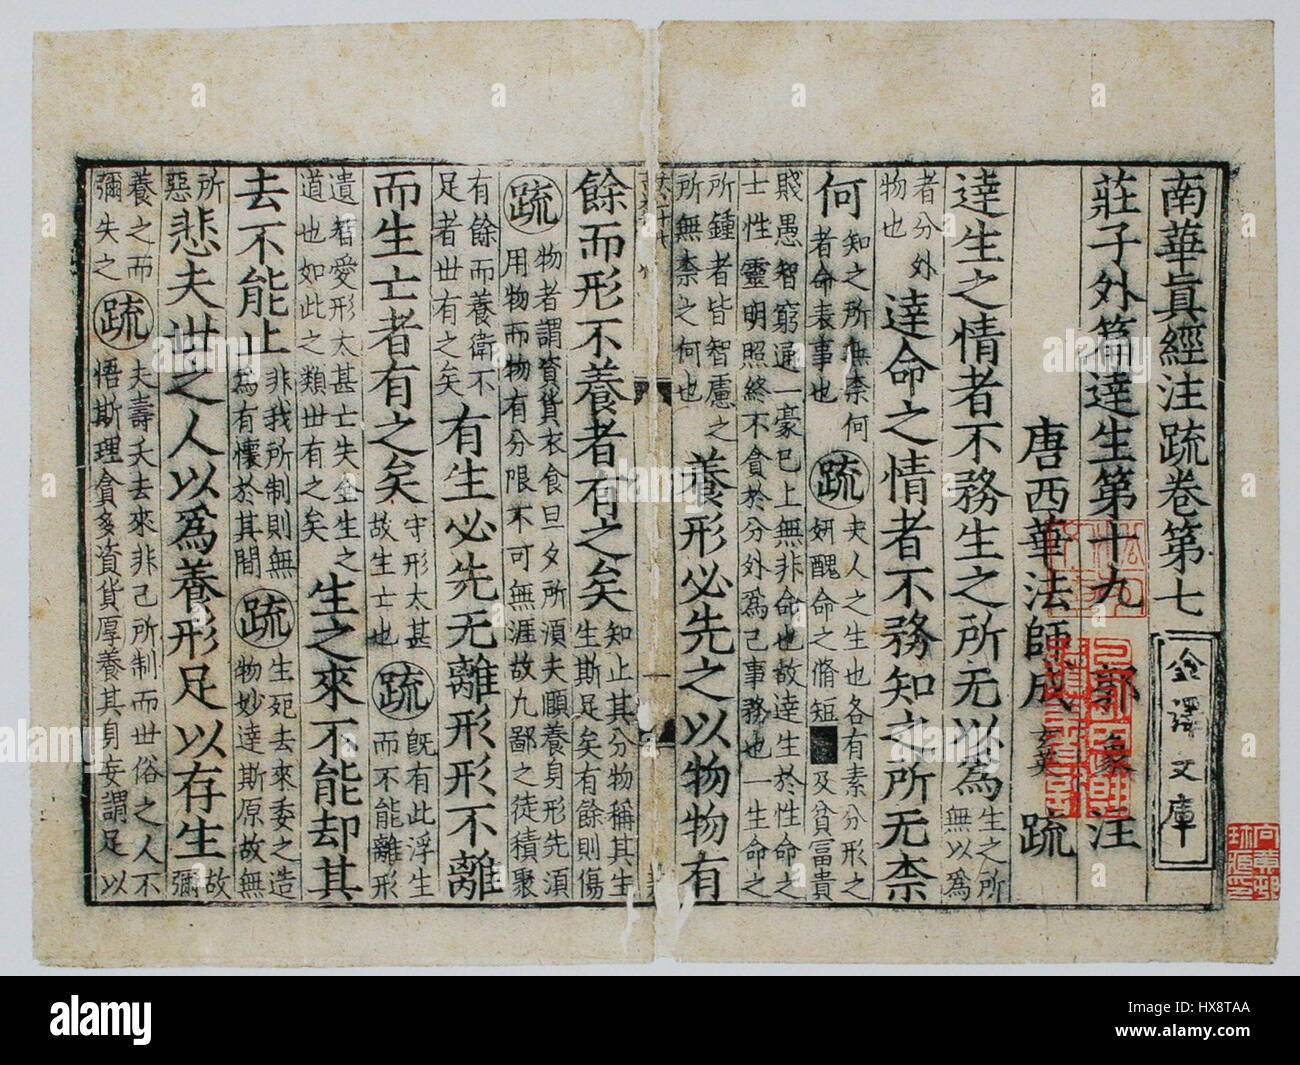 南華真經注疏卷第七 金澤文庫
莊子外篇達生第十九 郭 象 注
唐西華法師成 玄英 疏
達生之情者不務生之所无以為 生之所無以為
者分外物也 達命之情者不務知之所无柰
何 知之所無柰何者命表事也 疏 夫人之生也各有素分形之妍醜命之脩短及貧富貴
賤愚智窮通一豪已上無非命也故達生於性命之士性靈明照終不貪於分外為己事務也一生命之
所鍾者皆智慮之所無柰之何也 養形必先之以物物有
餘而形不養者有之矣 知止其分物稱其生生斯足矣有餘則傷
疏 物者謂資貨衣食旦夕所須夫頤養身形先須用物而物有分限不可無涯故凡鄙之徒積聚
有餘而養衛不足者世有之矣 有生必先无離形形不離
而生亡者有之矣 守形太甚故生亡也 疏 既有此浮生而不能離形
遺智愛形太甚亡失全生之道也如此之類世有之矣 生之來不能却其
去不能止 非我所制則無為有懷於其間 疏 生死去來委之造物妙達斯原故無
所惡 悲夫世之人以為養形足以存生 故彌
養之而彌失之 疏 夫壽夭去來非己所制而世俗之人不悟斯理貪多資貨厚養其身妄謂足以
alamy
www.alamy.com
HX8TAA